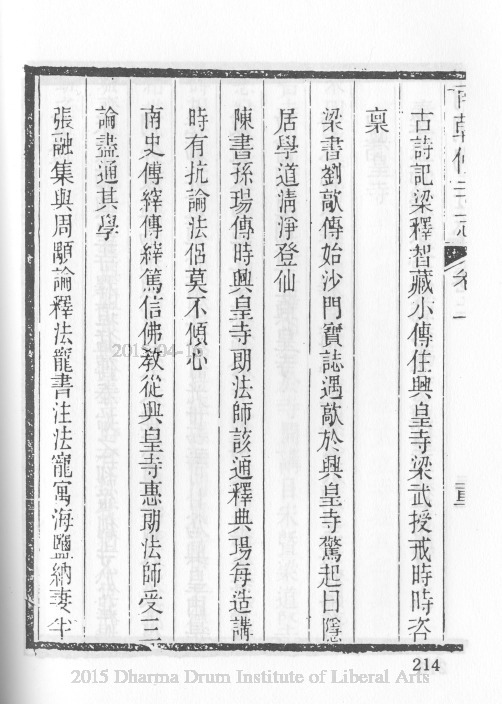 南朝佛寺志 卷上
古詩記梁釋智藏小傳住興皇寺梁武授戒時時咨
稟
梁書劉歊傳始沙門寶誌遇歊於興皇寺驚起曰隱
居學道清淨登仙
陳書孫瑒傳時興皇寺朗法師該通釋典瑒每造講
時有抗論法侶莫不傾心
南史傅縡傳縡篤信佛教從興皇寺惠朗法師受三
論盡通其學
張融集與周顒論釋法寵書注法寵寓海鹽納妻半
214
2015 Dharma Drum Institute of Liberal Arts